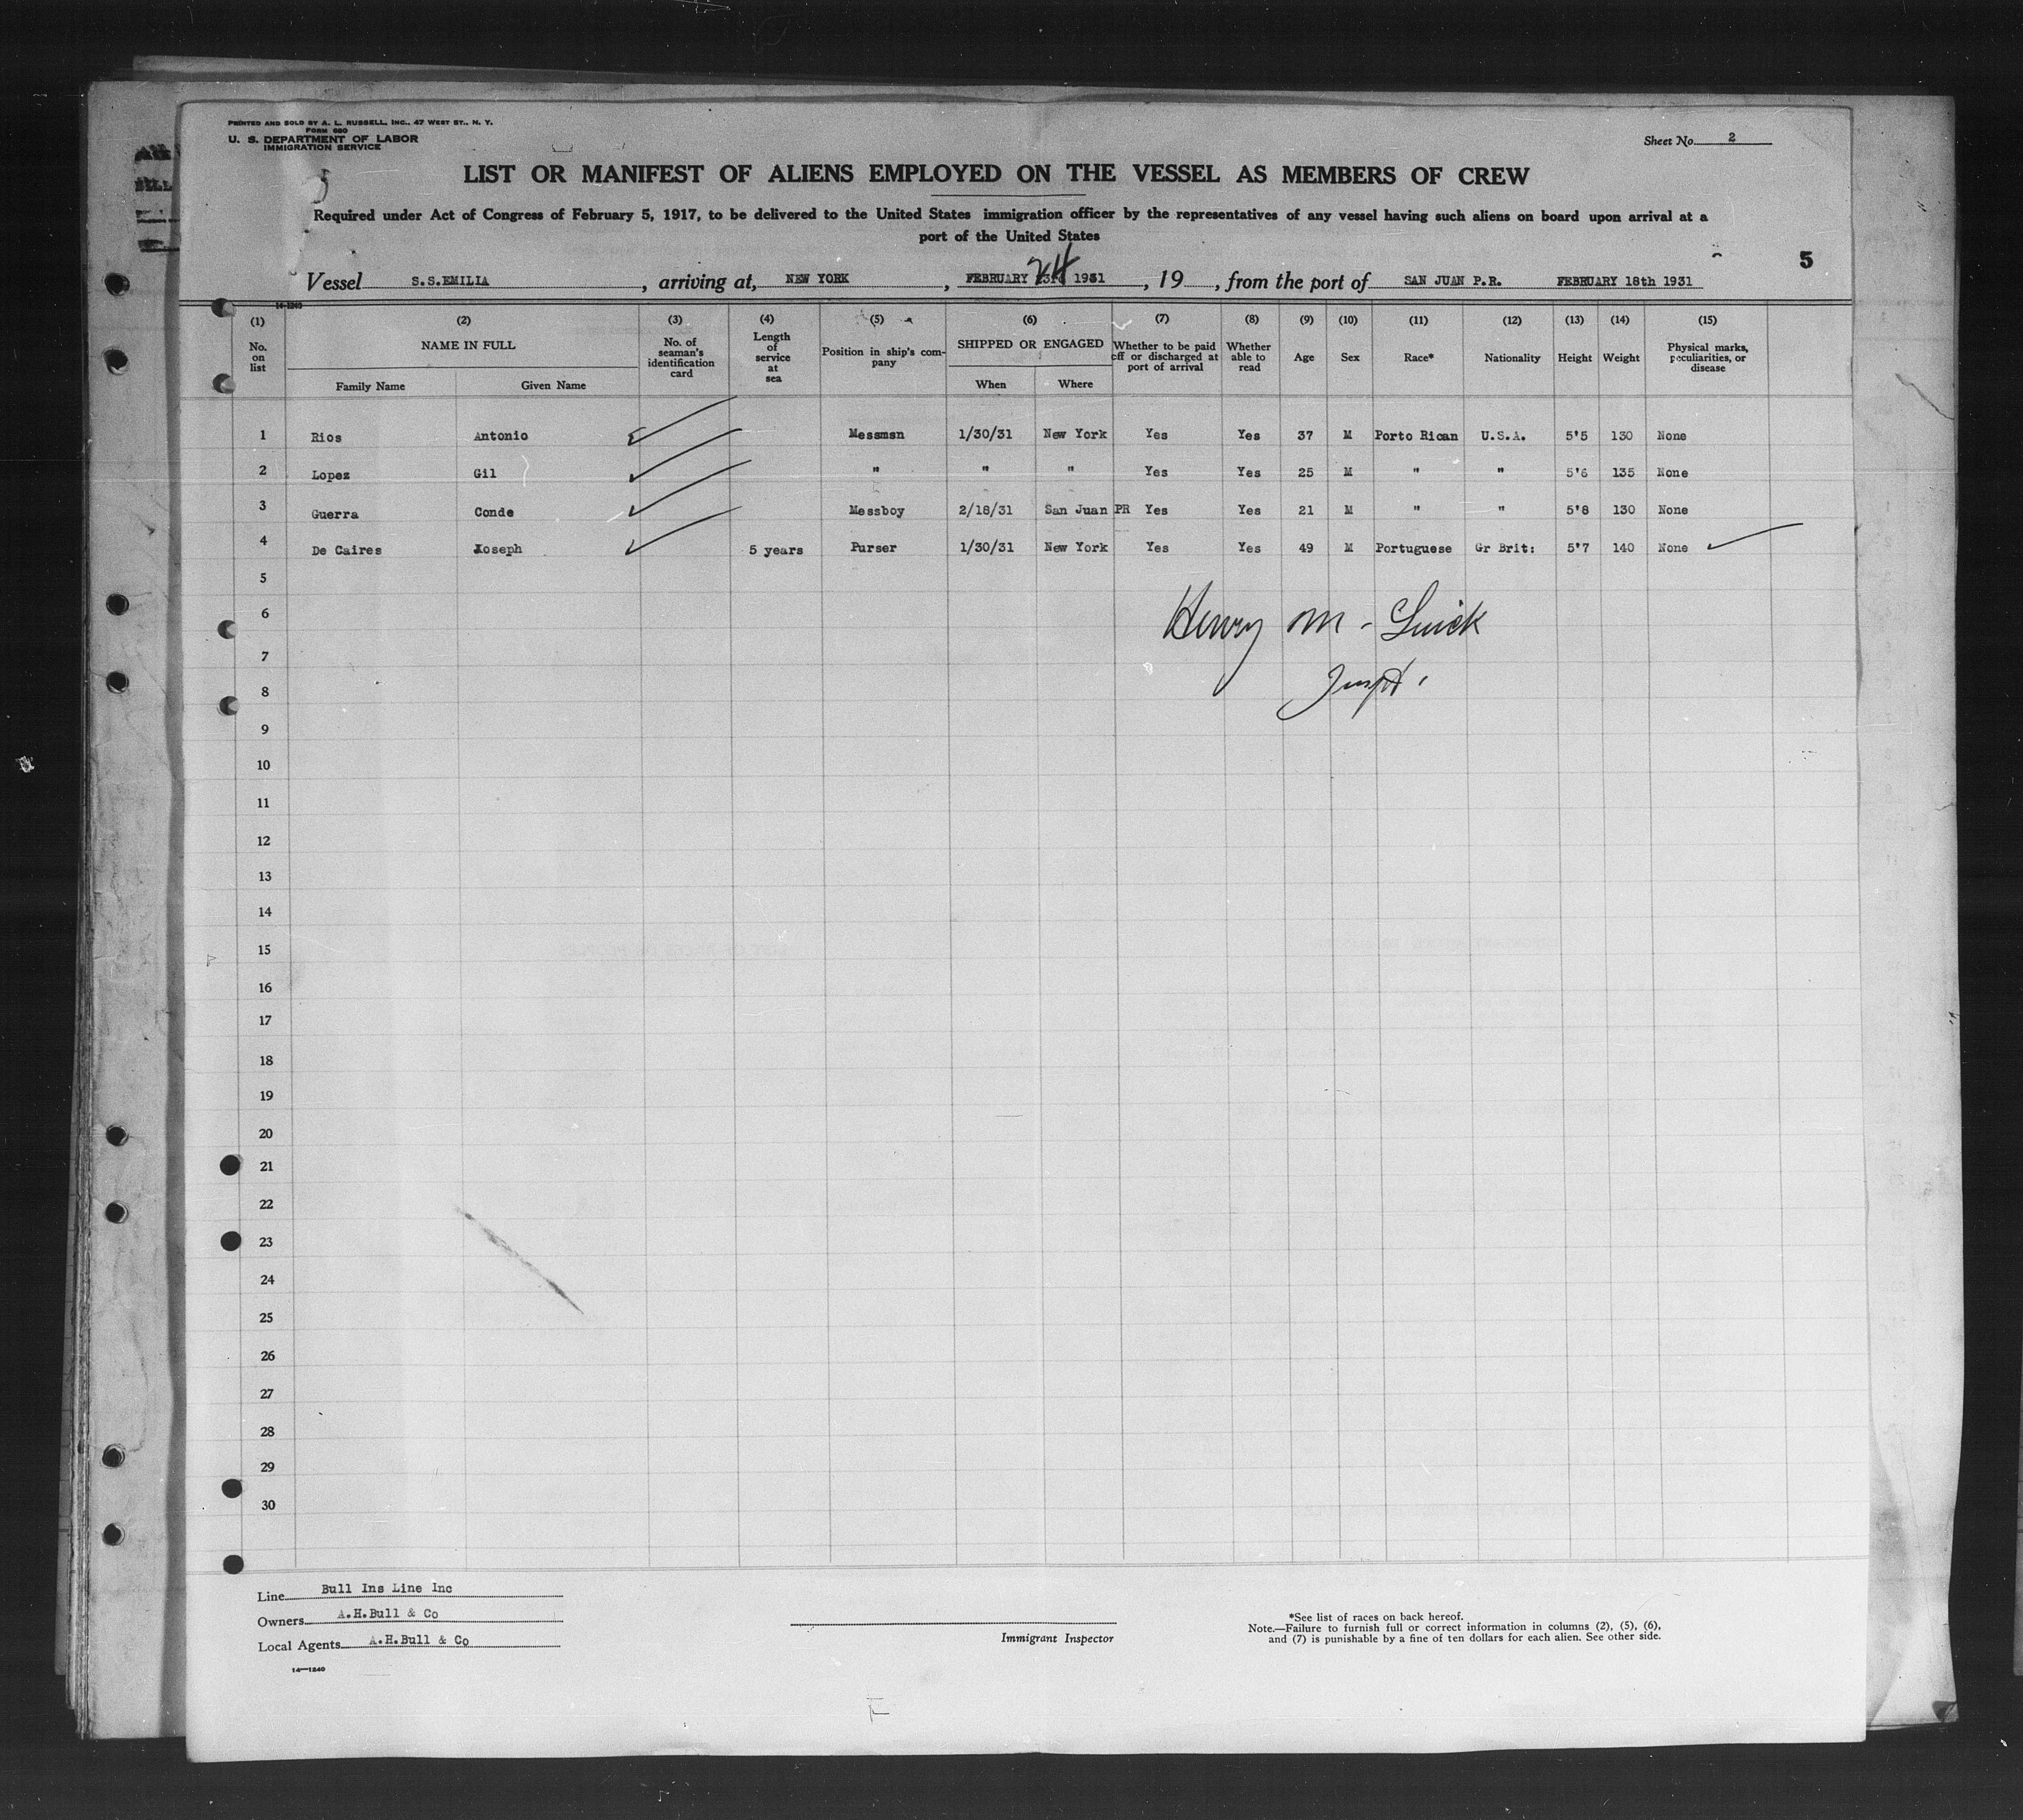 PRINTED AND SOLD BY A. L. RUSSELL, INC., 47 WEST ST., N. Y.
FORM 680
U. S. DEPARTMENT OF LABOR
IMMIGRATION SERVICE
Sheet No. 2
LIST OR MANIFEST OF ALIENS EMPLOYED ON THE VESSEL AS MEMBERS OF CREW
Required under Act of Congress of February 5, 1917, to be delivered to the United States immigration officer by the representatives of any vessel having such aliens on board upon arrival at a
port of the United States
5
Vessel S.S.EMILIA, arriving at, NEW YORK, FEBRUARY 24 1931, 19 , from the port of SAN JUAN P.R. FEBRUARY 18th 1931
14-1240
(1) (2) (3) (4) (5) (6) (7) (8) (9) (10) (11) (12) (13) (14) (15)
No. on list NAME IN FULL Family Name Given Name No. of seaman's identification card Length of service at sea Position in ship's com- pany SHIPPED OR ENGAGED When Where Whether to be paid off or discharged at port of arrival Whether able to read Age Sex Race* Nationality Height Weight Physical marks, peculiarities, or disease
1 Rios Antonio Messman 1/30/31 New York Yes Yes 37 M Porto Rican U.S.A. 5'5 130 None
2 Lopez Gil " " " Yes Yes 25 M " " 5'6 135 None
3 Guerra Conde Messboy 2/18/31 San Juan PR Yes Yes 21 M " " 5'8 130 None
4 De Caires Joseph 5 years Purser 1/30/31 New York Yes Yes 49 M Portuguese Gr Brit: 5'7 140 None
5
6
Henry M -
7
8
9
10
11
12
13
14
15
16
17
18
19
20
21
22
23
24
25
26
27
28
29
30
Line Bull Ins Line Inc
Owners A.H.Bull & Co
Local Agents A.H.Bull & Co
14—1240
Immigrant Inspector
*See list of races on back hereof.
Note.—Failure to furnish full or correct information in columns (2), (5), (6),
and (7) is punishable by a fine of ten dollars for each alien. See other side.